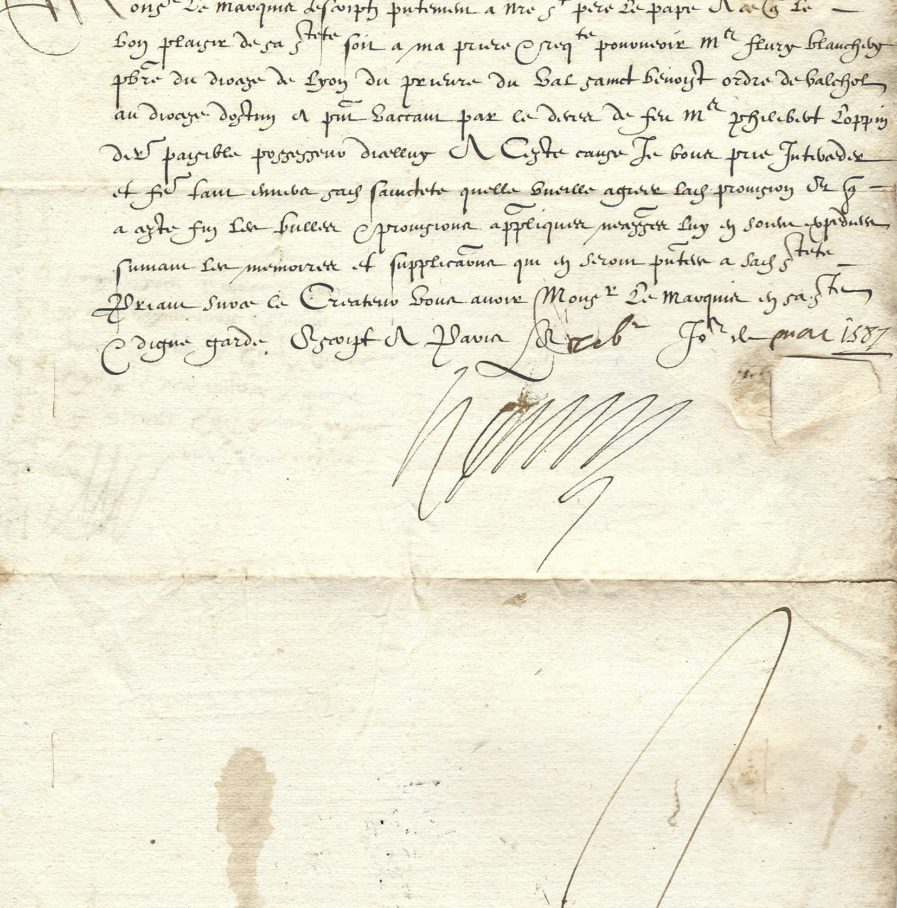 Mons.r Le Marquis Jescriptz p̃ntement a nre s.t pere Le pape A ce q̃ Le
bon plaisir de sa s.tete soit a ma priere & req.te pourveoir M.e flury blanchery
pbr̃e du dioceze de Lyon du prieure du Val sainct benoist ordre de Valchol
au dioceze dostun A p̃nt Vaccant par le deces de feu M.e philibert Coppin
der.r paisible possesseur dicelluy A Ceste cause Je vous prie Interceder
et f.re tant envers sad sainctete quelle vueille agreer lad provision Et q̃
a ceste fin les bulles & provisions app̃liques neccr̃es luy en soient expediees
suivant les memoires et supplicaõns qui en seront p̃ntees a sad s.tete
Priant surce le Createur vous avoir Mons.r Le Marquis en sa s.te
& digne garde Escript A Paris Le Jo.r de mai 1587
Henry